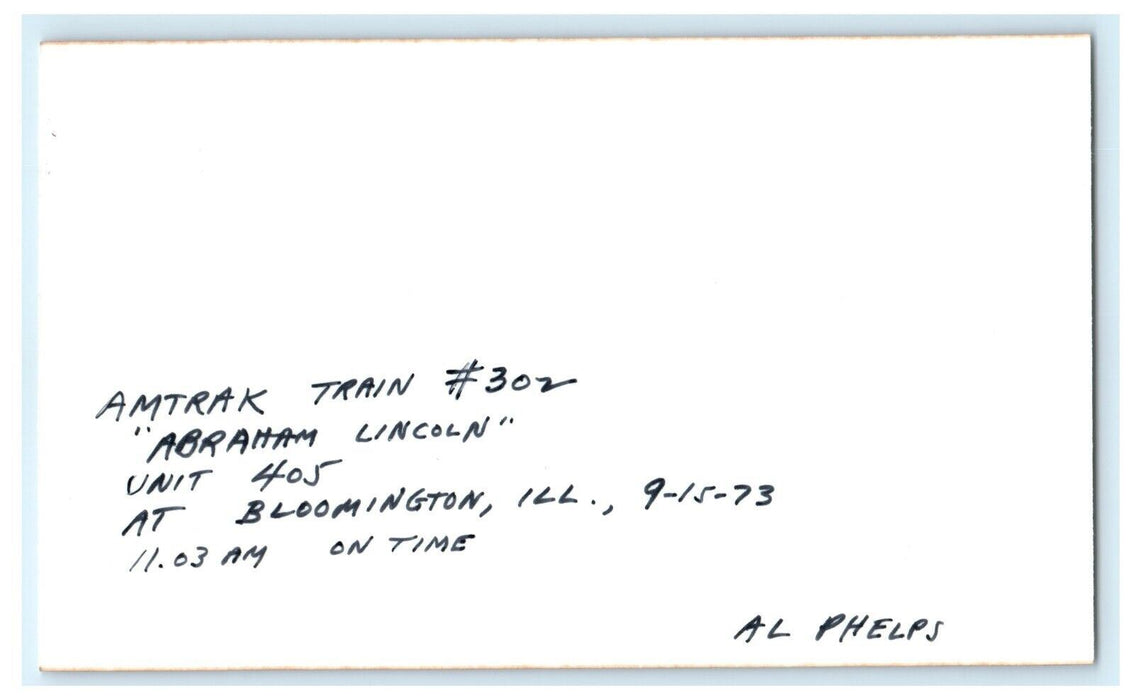 AMTRAK TRAIN #302
"ABRAHAM LINCOLN"
UNIT 405
AT BLOOMINGTON, ILL., 9-15-73
11.03 AM ON TIME
AL PHELPS